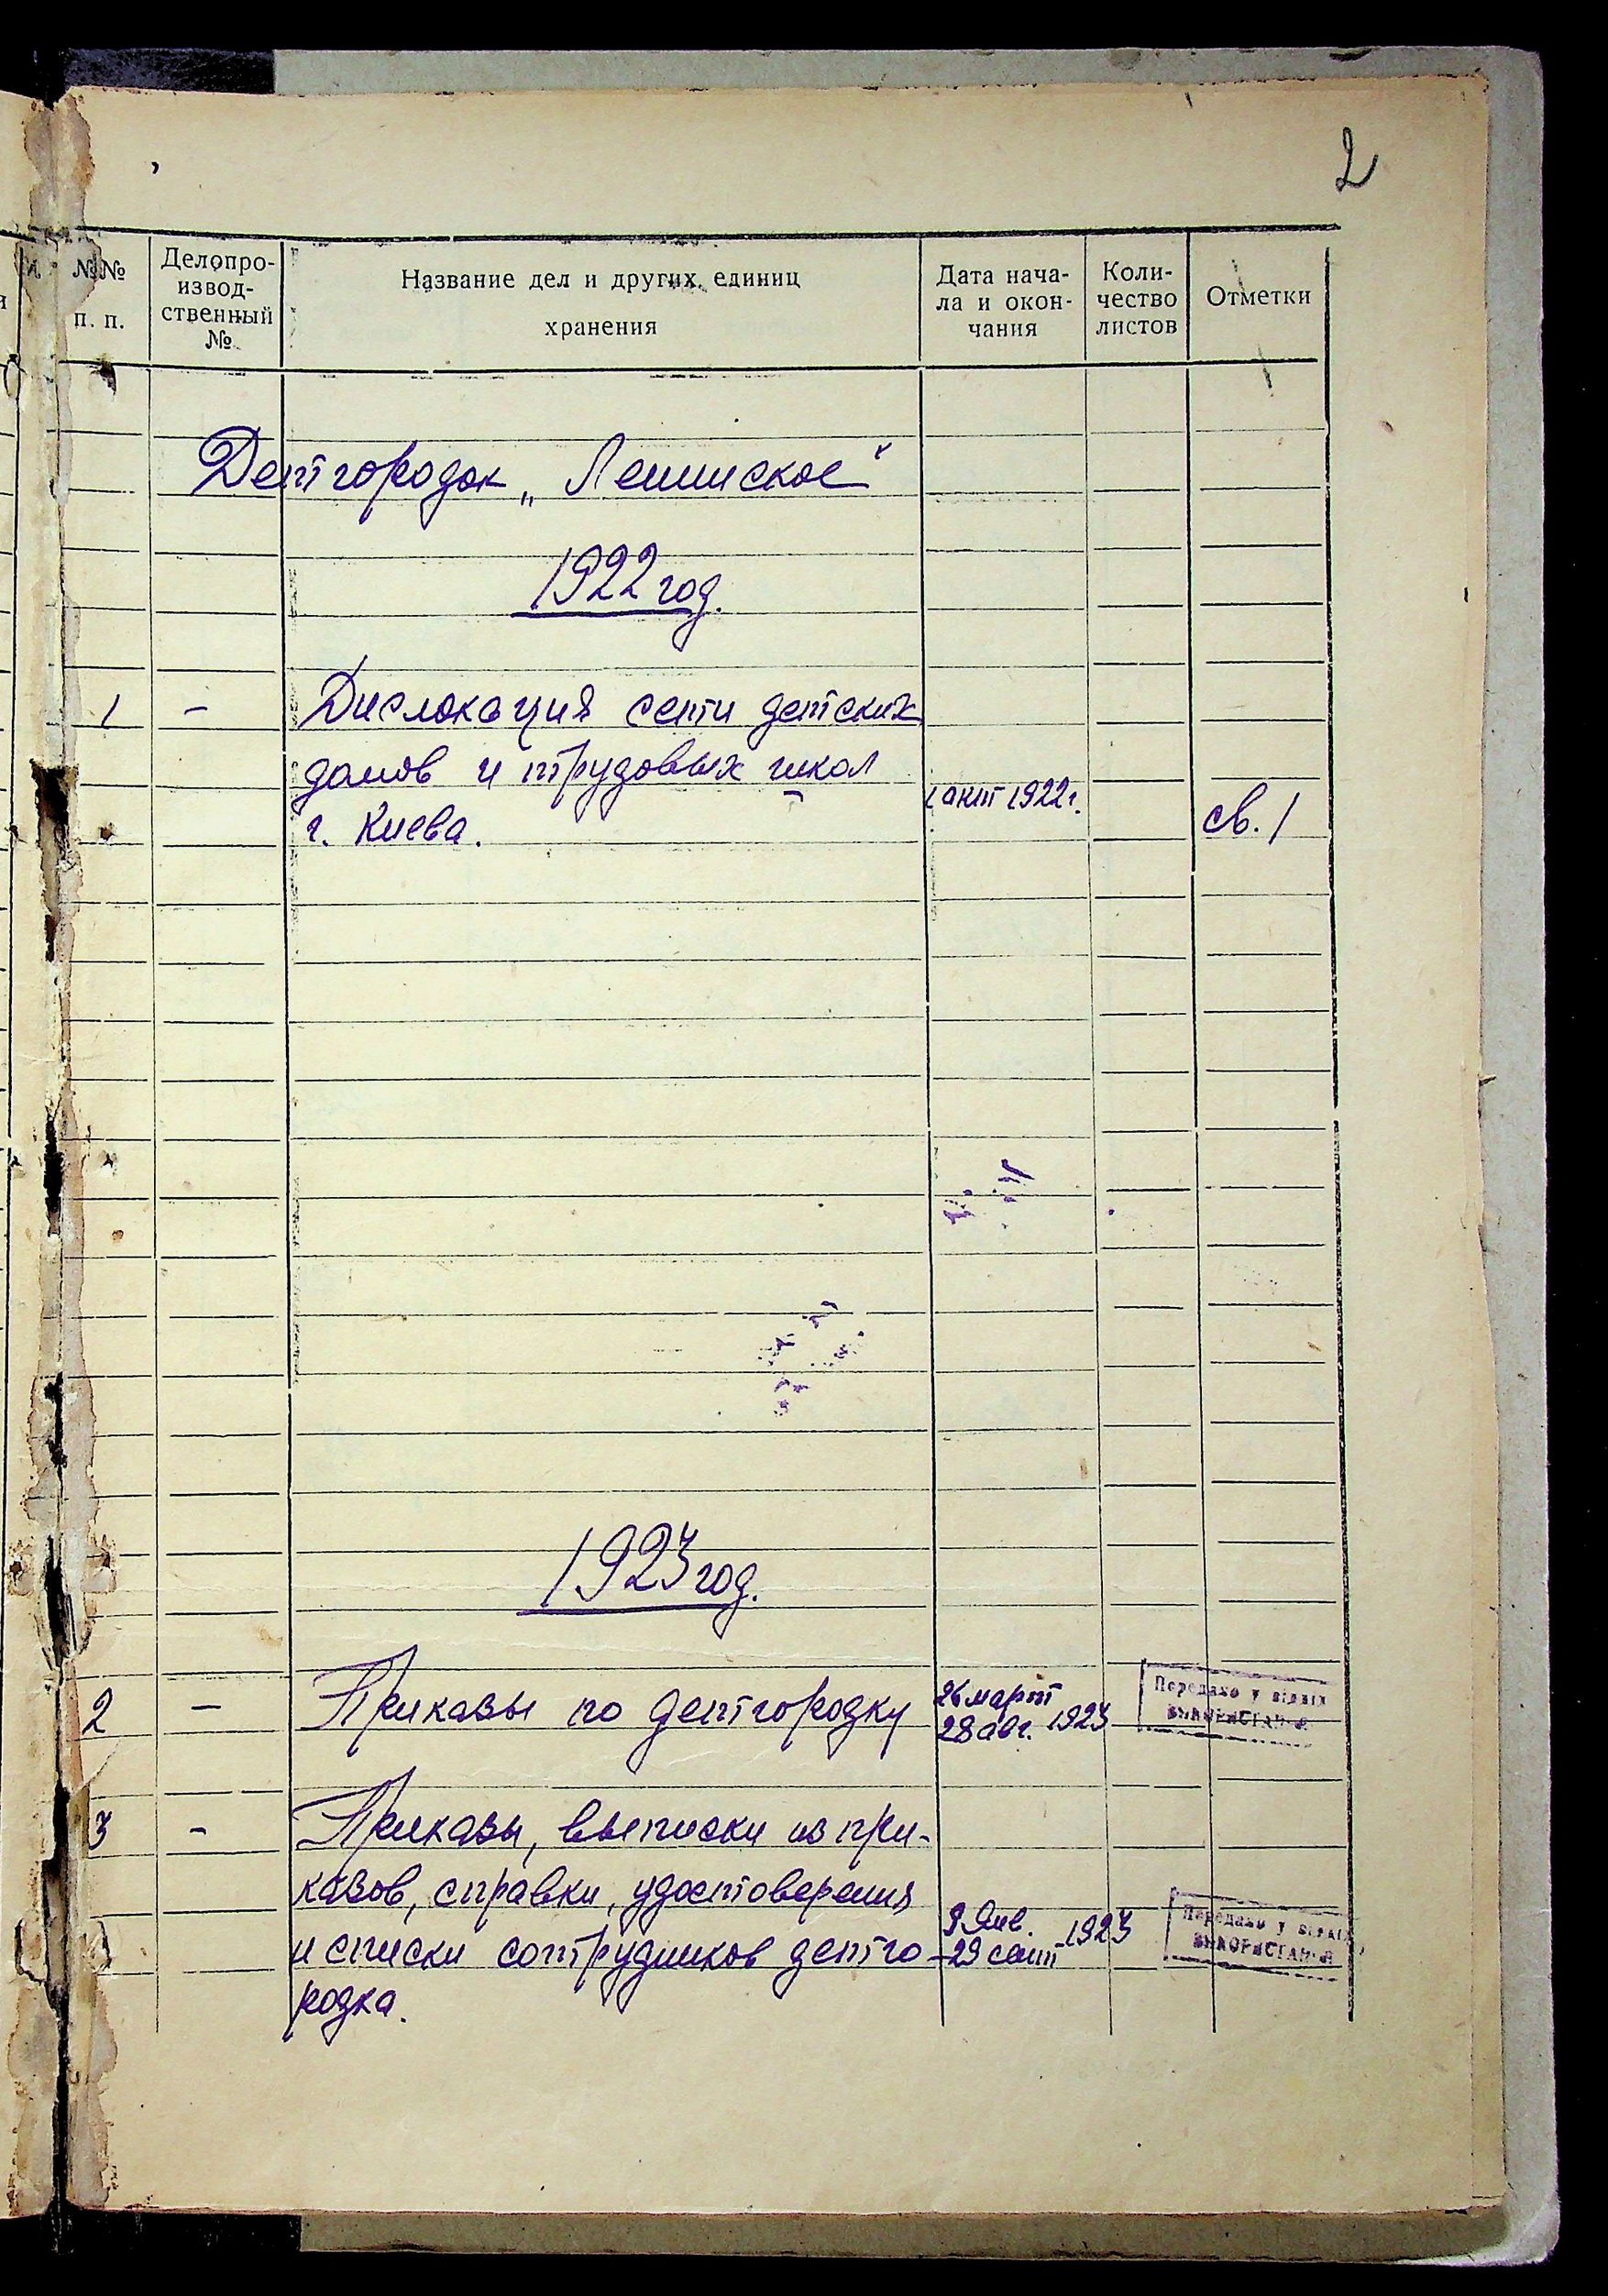 2
№№ п. п.
Делопро-
извод-
ственный
№
Название дел и других единиц
хранения
Дата нача-
ла и окон-
чания
Коли-
чество
листов
Отметки
Детгородок „Ленинское“
1922 год.
1 – Дислокация сети детских
домов и трудовых школ
г. Киева.
1 окт 1922 г.
св. 1
1923 год.
2 – Приказы по детгородку
26 март
28 авг. 1923
Передано у
3 – Приказы, выписки из при-
казов, справки, удостоверения
и списки сотрудников детго-
родка.
9 Янв.
29 сент 1923
Передано у